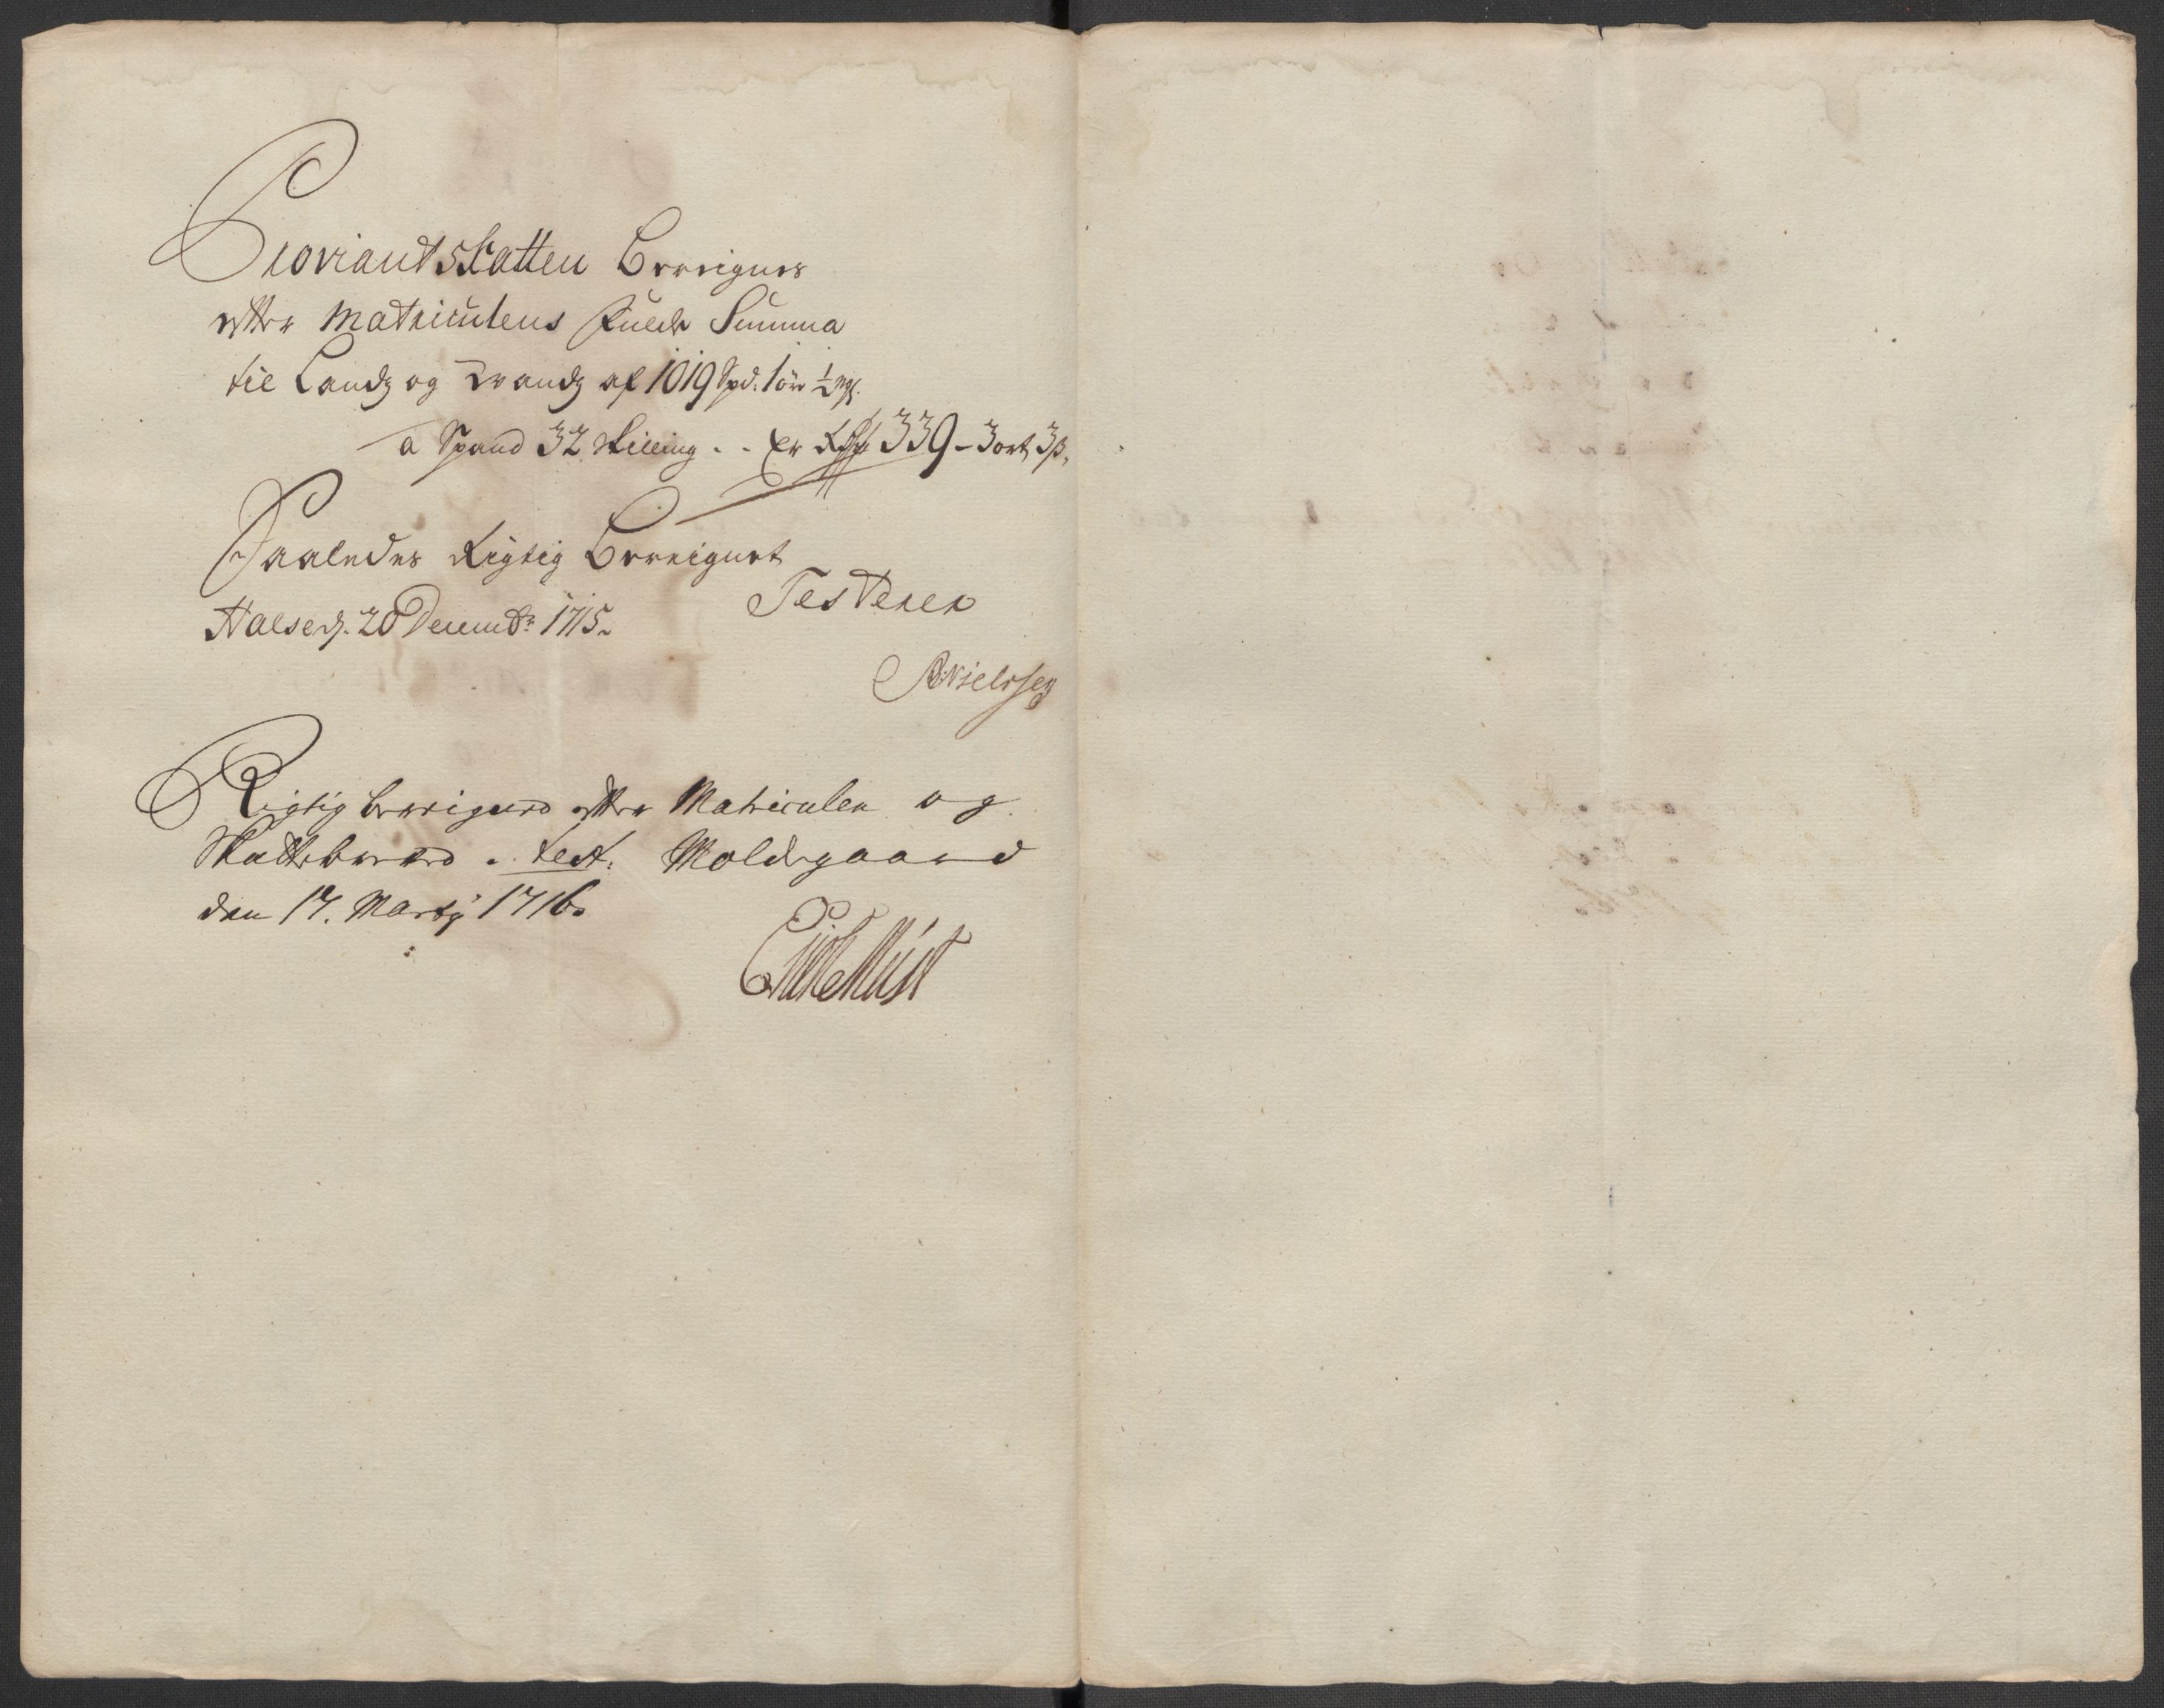 Proviant Skatten Bereignes
efter Matriculens Fulde Summa
til Landz og Vandz af 1019 Spd: 1 ör ½ mgl.
a Spand 32 skilling . . Er Rdlr 339 - 3 ort 3 ß.
Saaledes Rigtig Bereignet
Testerer
Halse d. 20 Decembr 1715.
Nielssen
Rigtig beregned efter Matriculen og
Skattebreved . test: Moldegaard
den 17. Marty 1716.
Must